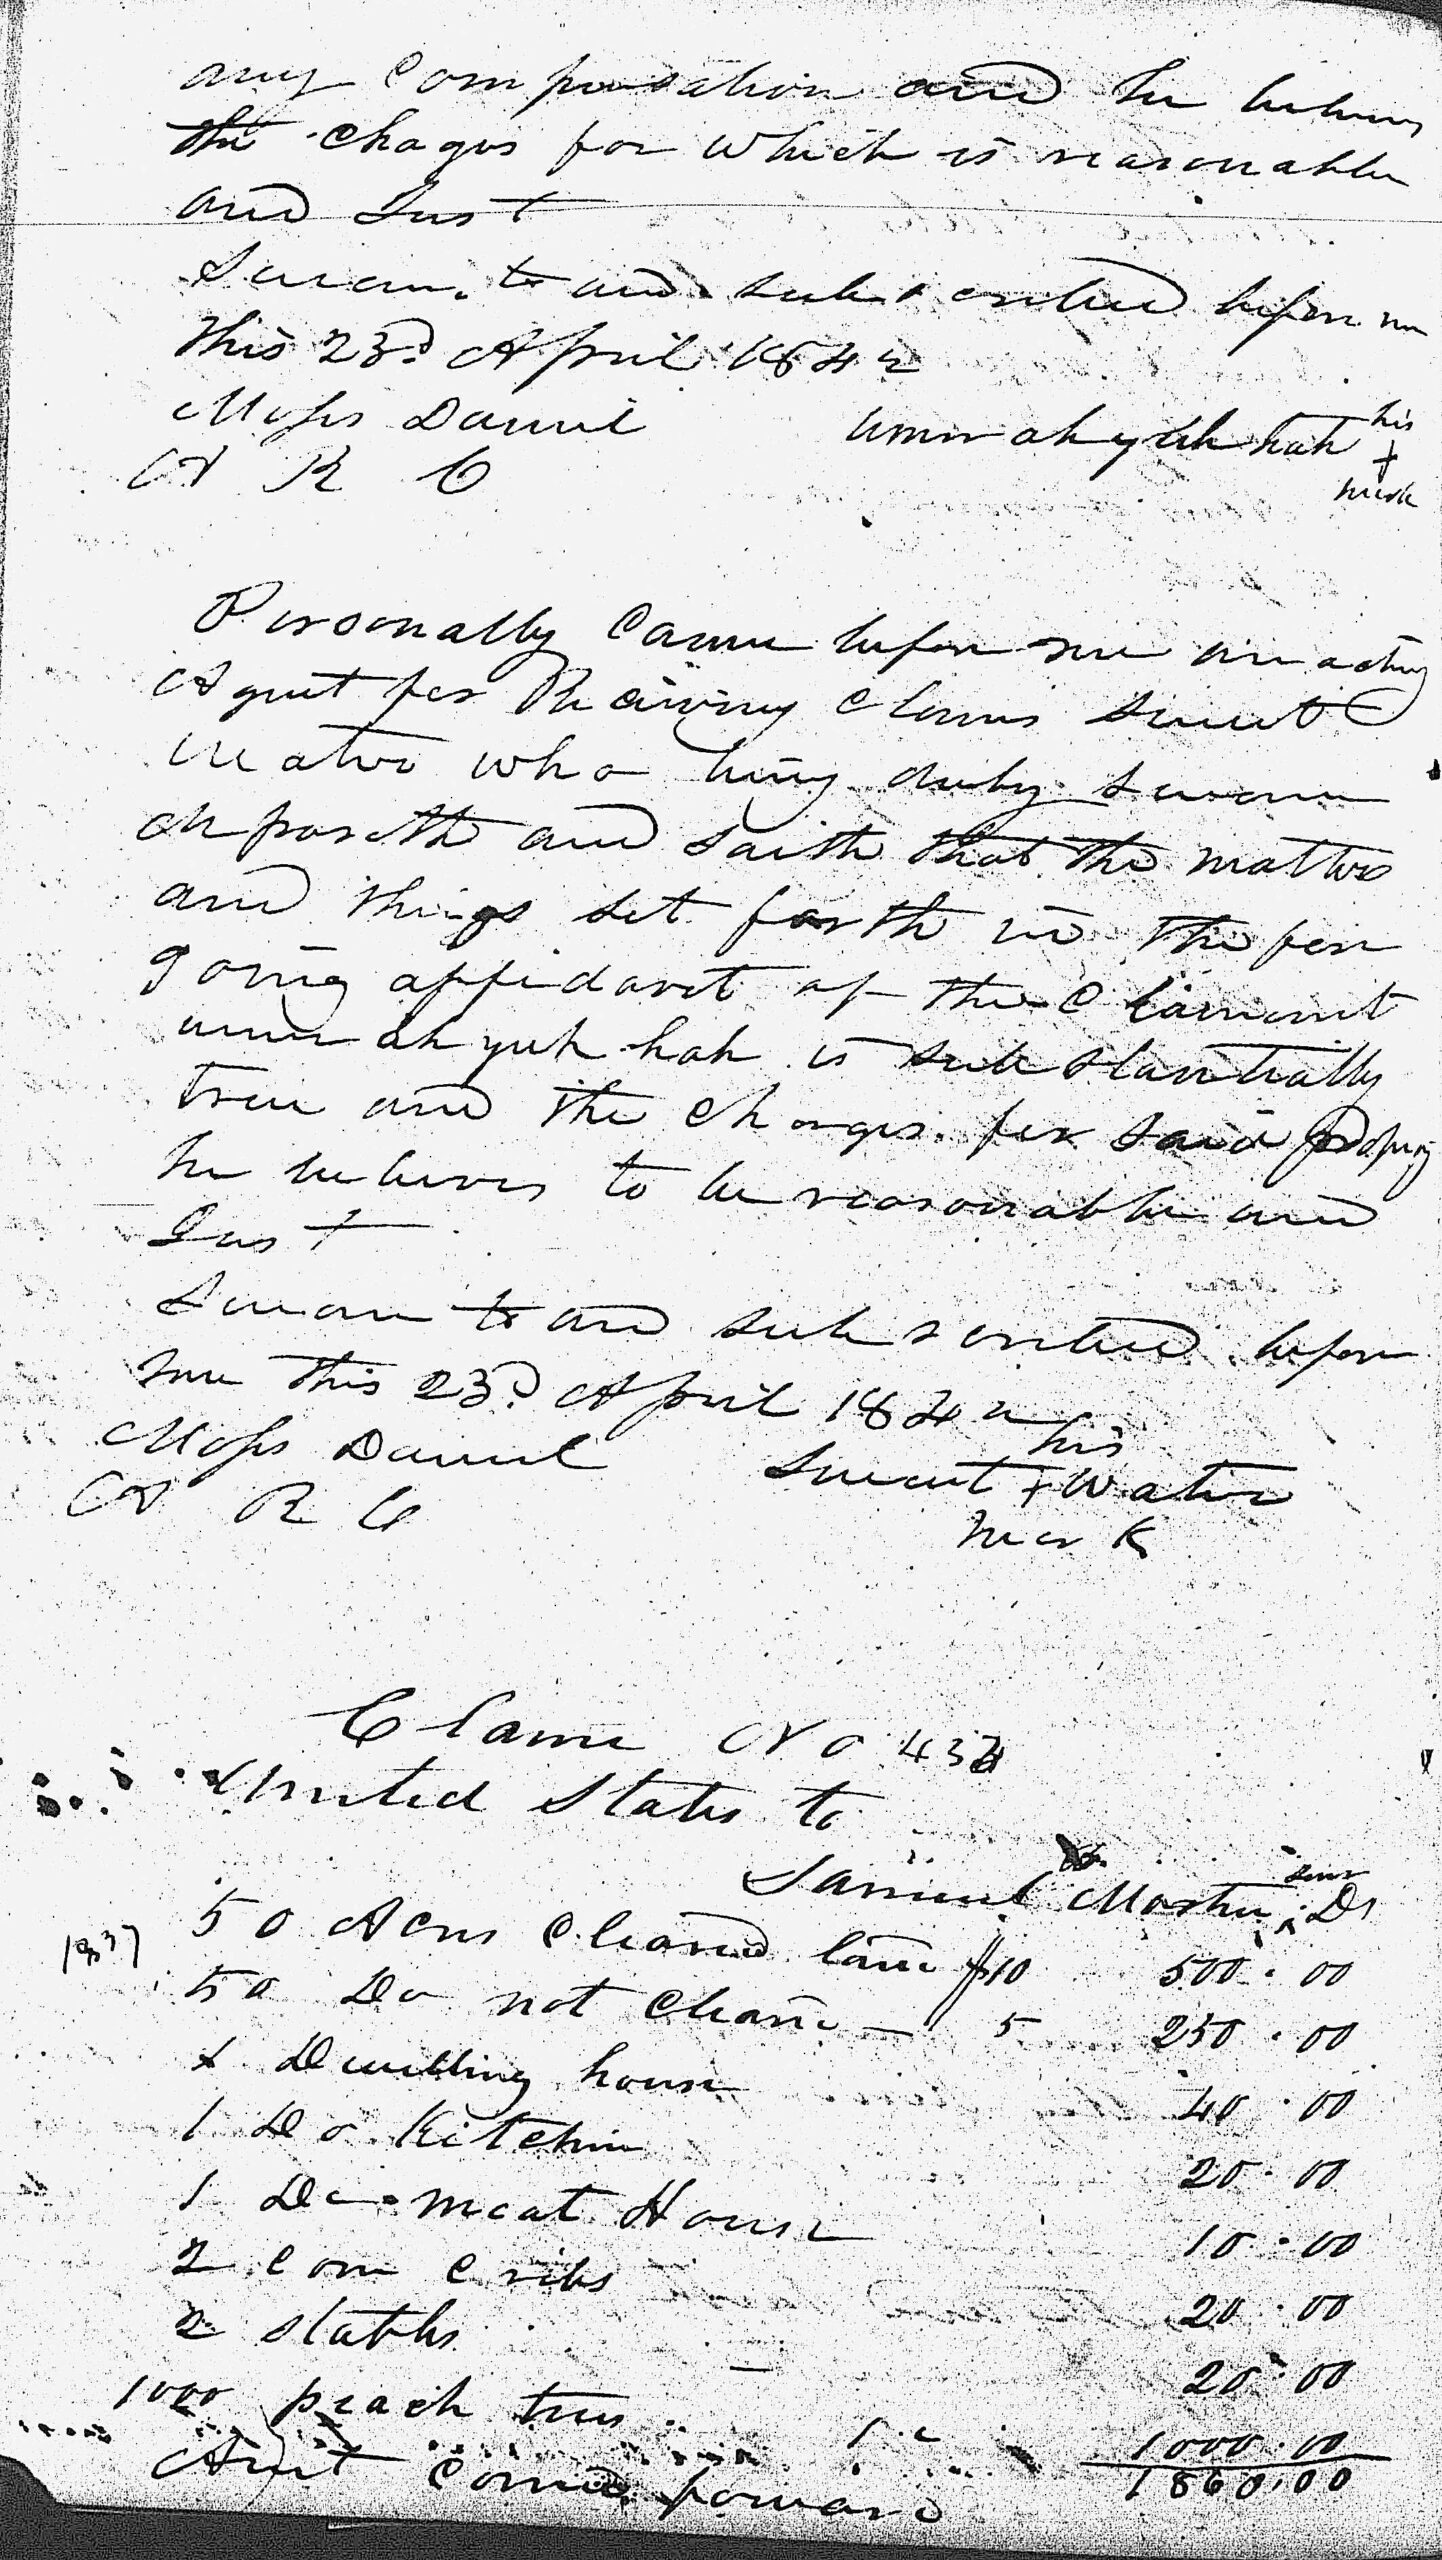 any Compensation and he believes
the Chages for which is reasonable
and Just
Sworn to and subscribed before me
this 23d April 1842
Moses Daniel
A R C
his
+
mark
Personally Came before me an acting
Agent for Receiving Claims Sweet
Water who being duly Sworn
deposeth and saith that the matters
and things set forth in the fore
going affidavit of the Claimant
is substantially
true and the Charges for said property
he believes to be reasonable and
Just
Sworn to and subscribed before
me this 23d April 1842
Moses Daniel
his
Sweet + Water
mark
A R C
Claim No
United States to
Samuel Dr
1837 50 Acres Cleared land $10 500.00
50 Do not Cleared — 5 250.00
1 Dwelling house 40.00
1 Do Kitchin 20.00
1 Do meat House 10.00
2 Corn Cribs 20.00
2 Stables 20.00
1000 peach trees 1000.00
Amt Carried forward 1860.00